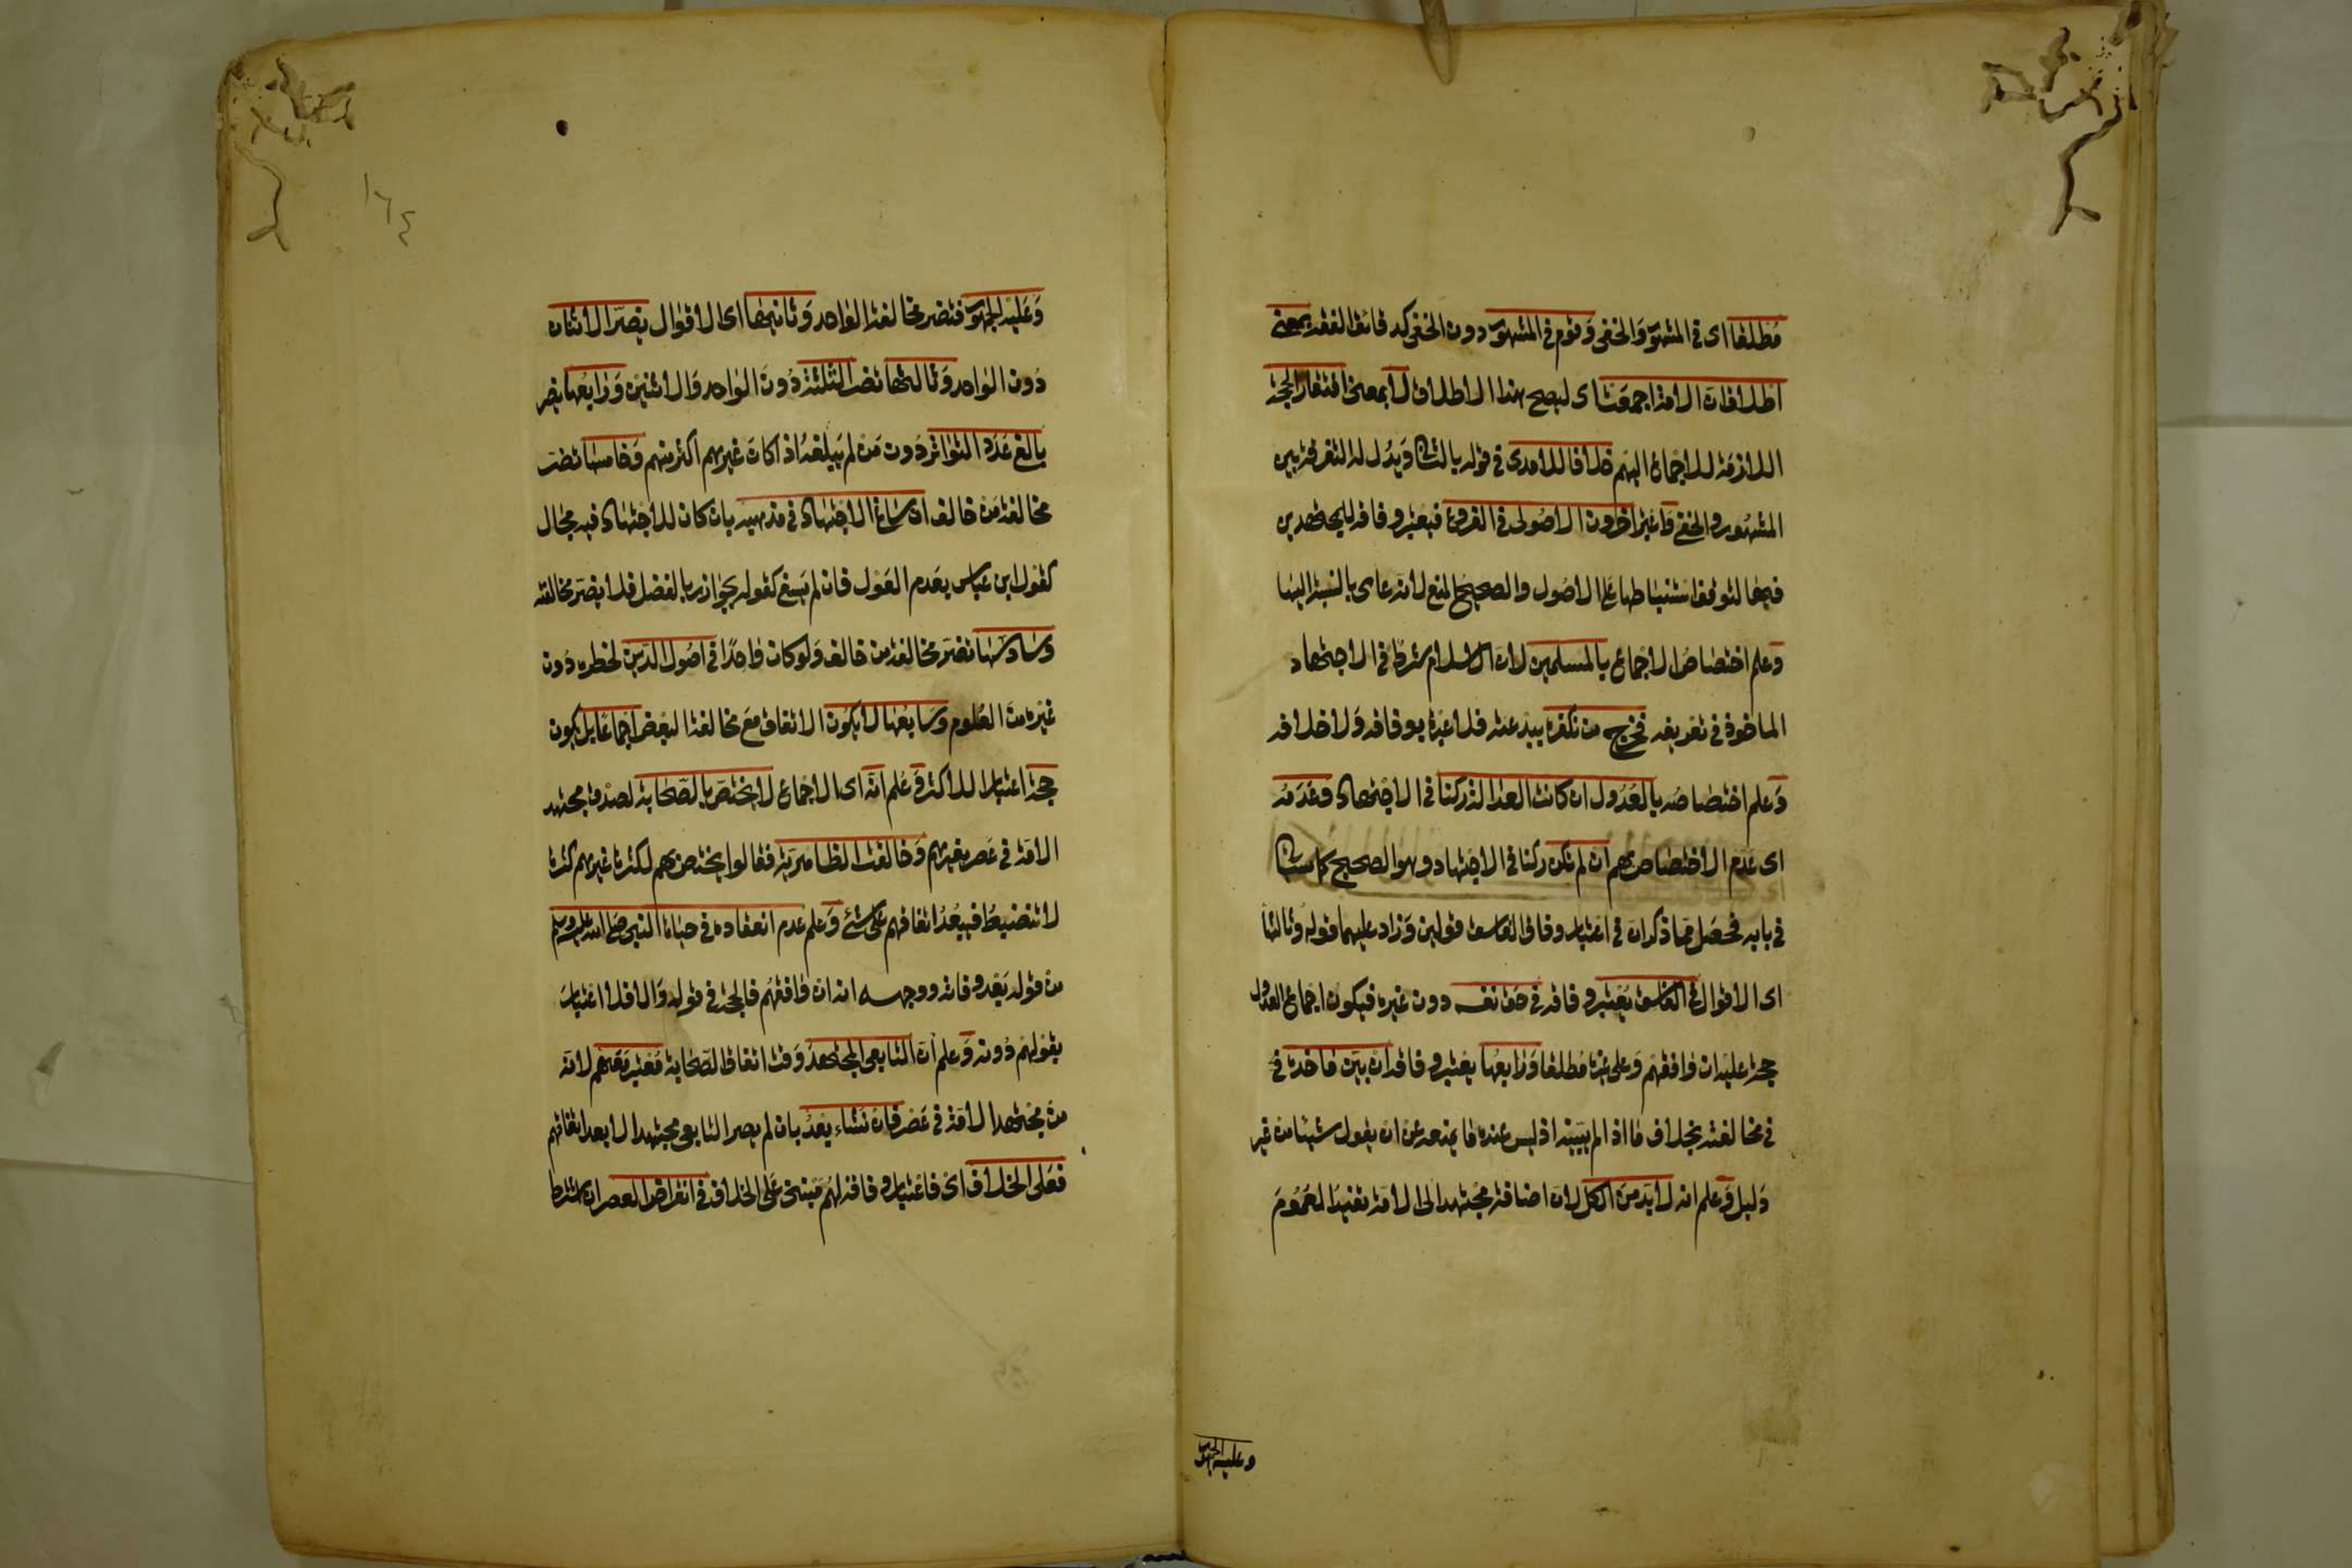 مطلقا اى فى المشهور والخفى وقوم فى المشهور دون الخفى كدقائق الفقه بمعنى
اطلاق ان الامة اجمعت اى ليصح هذا الاطلاق لا بمعنى افتقار الحجة
اللازمة للاجماع اليهم خلافا للامدى فى قوله بالثانى ويدل له التفرقة بين
المشهور والخفى واعتبر اخرون الاصولى فى الفروع فيعتبر وفاقه للمجتهدين
فيها لتوقف استنباطها على الاصول والصحيح المنع لانه عامى بالنسبة اليها
وعلم اختصاص الاجماع بالمسلمين لان الاسلام شرط فى الاجتهاد
الماخوذ فى تعريفه فخرج من نكفره ببدعته فلا عبرة بوفاقه ولا خلافه
وعلم اختصاصه بالعدول ان كانت العدالة ركنا فى الاجتهاد وعدمه
اى عدم الاختصاص بهم ان لم تكن ركنا فى الاجتهاد وهو الصحيح كما سياتى
فى بابه فحصل مما ذكر ان فى اعتبار وفاق الفاسق قولين وزاد عليهما قوله وثالثها
اى الاقوال فى الفاسق يعتبر وفاقه فى حق نفسه دون غيره فيكون اجماع العدول
حجة عليه ان وافقهم وعلى غيره مطلقا ورابعها يعتبر وفاقه ان بين ماخذه فى
فى مخالفته بخلاف ما اذا لم يبينه اذ ليس عنده ما يمنعه عن ان يقول شيئا من غير
دليل وعلم انه لا بد من الكل لان اضافة مجتهد الى الامة تفيد العموم
وعليه الجمهور
١٦٤
وعليه الجمهور فتضر مخالفة الواحد وثانيها اى الاقوال يضر الاثنان
دون الواحد وثالثها تضر الثلثة دون الواحد والاثنين ورابعها يضر
بالغ عدد التواتر دون من لم يبلغه اذا كان غيرهم اكثر منهم وخامسها تضر
مخالفة من خالف ان ساغ الاجتهاد فى مذهبه بان كان للاجتهاد فيه مجال
كقول ابن عباس بعدم العول فان لم يسغ كقوله بجواز ربا الفضل فلا يضر مخالفته
وسادسها تضر مخالفة من خالف ولو كان واحدا فى اصول الدين لخطره دون
غيره من العلوم وسابعها لا يكون الاتفاق مع مخالفة البعض اجماعا بل يكون
حجة اعتبارا للاكثر وعلم انه اى الاجماع لا يختص بالصحابة لصدق مجتهد
الامة فى عصر بغيرهم وخالفت الظاهرية فقالوا يختص بهم لكثرة غيرهم كثرة
لا تنضبط فيبعد اتفاقهم على شئ وعلم عدم انعقاده فى حياة النبى صلى الله عليه وسلم
من قوله بعد وفاته ووجهه انه ان وافقهم فالحجة فى قوله والا فلا اعتبار
بقولهم دونه وعلم ان التابعى المجتهد وقت اتفاق الصحابة معتبر معهم لانه
من مجتهد الامة فى عصر فان نشاء بعد بان لم يصر التابعى مجتهدا الا بعد اتفاقهم
فعلى الخلاف اى فاعتبار وفاقه لهم مبنى على الخلاف فى انقراض العصر ان اشترط